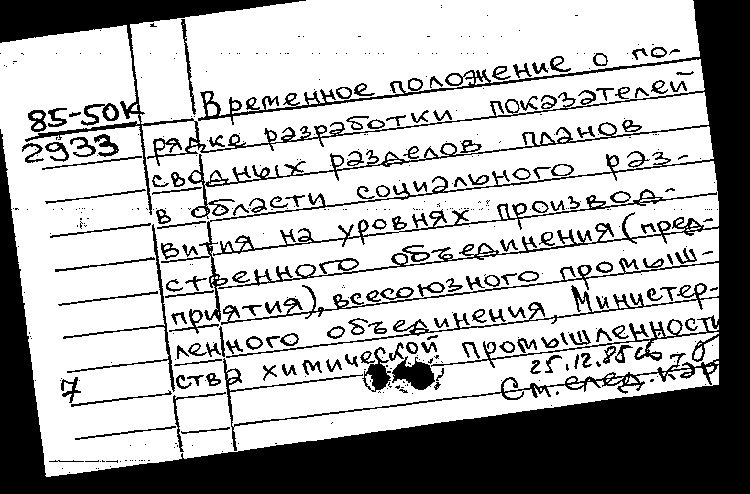 85-50К
2933
Временное положение о по-
рядке разработки показателей
сводных разделов планов
в области социального раз-
вития на уровнях производ-
ственного объединения (пред-
приятия), всесоюзного промыш-
ленного объединения, Министер-
ства химической промышленности
25.12.85
7
См. след. кар